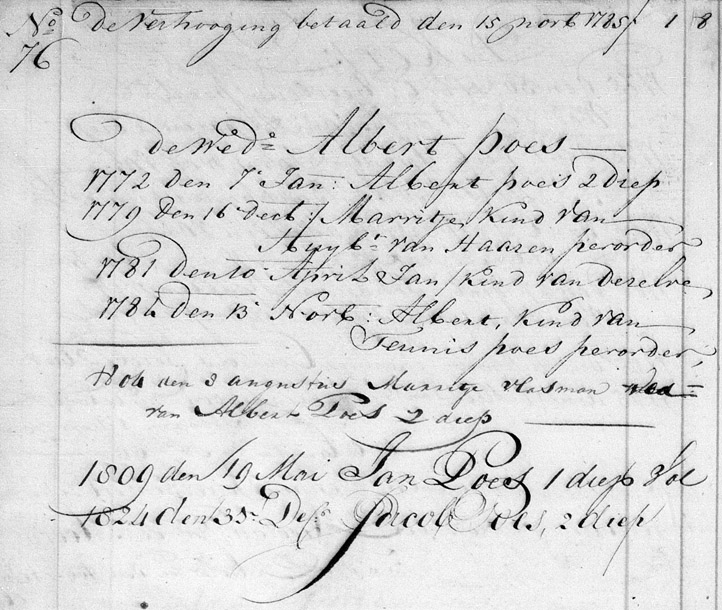 No 76 de verhooging betaald den 15 norb 1785/ 1 8
de Wed: Albert poes
1772 den 7 Jan: Albert poes 2 diep
1779 den 16 decb:/ Marritje, kind van
Huyb: van Haaren perorder
1781 den 10 April Jan / kind van dezelve
1785 den 13 Norb: Albert, kind van
Teunis poes perorder,
1804 den 3 augustus Marritje Vlasman
van Albert Poes 2 diep
1809 den 19 Mai Jan Poes 1 diep Vol
1824 den Jacob Poes, 2 diep